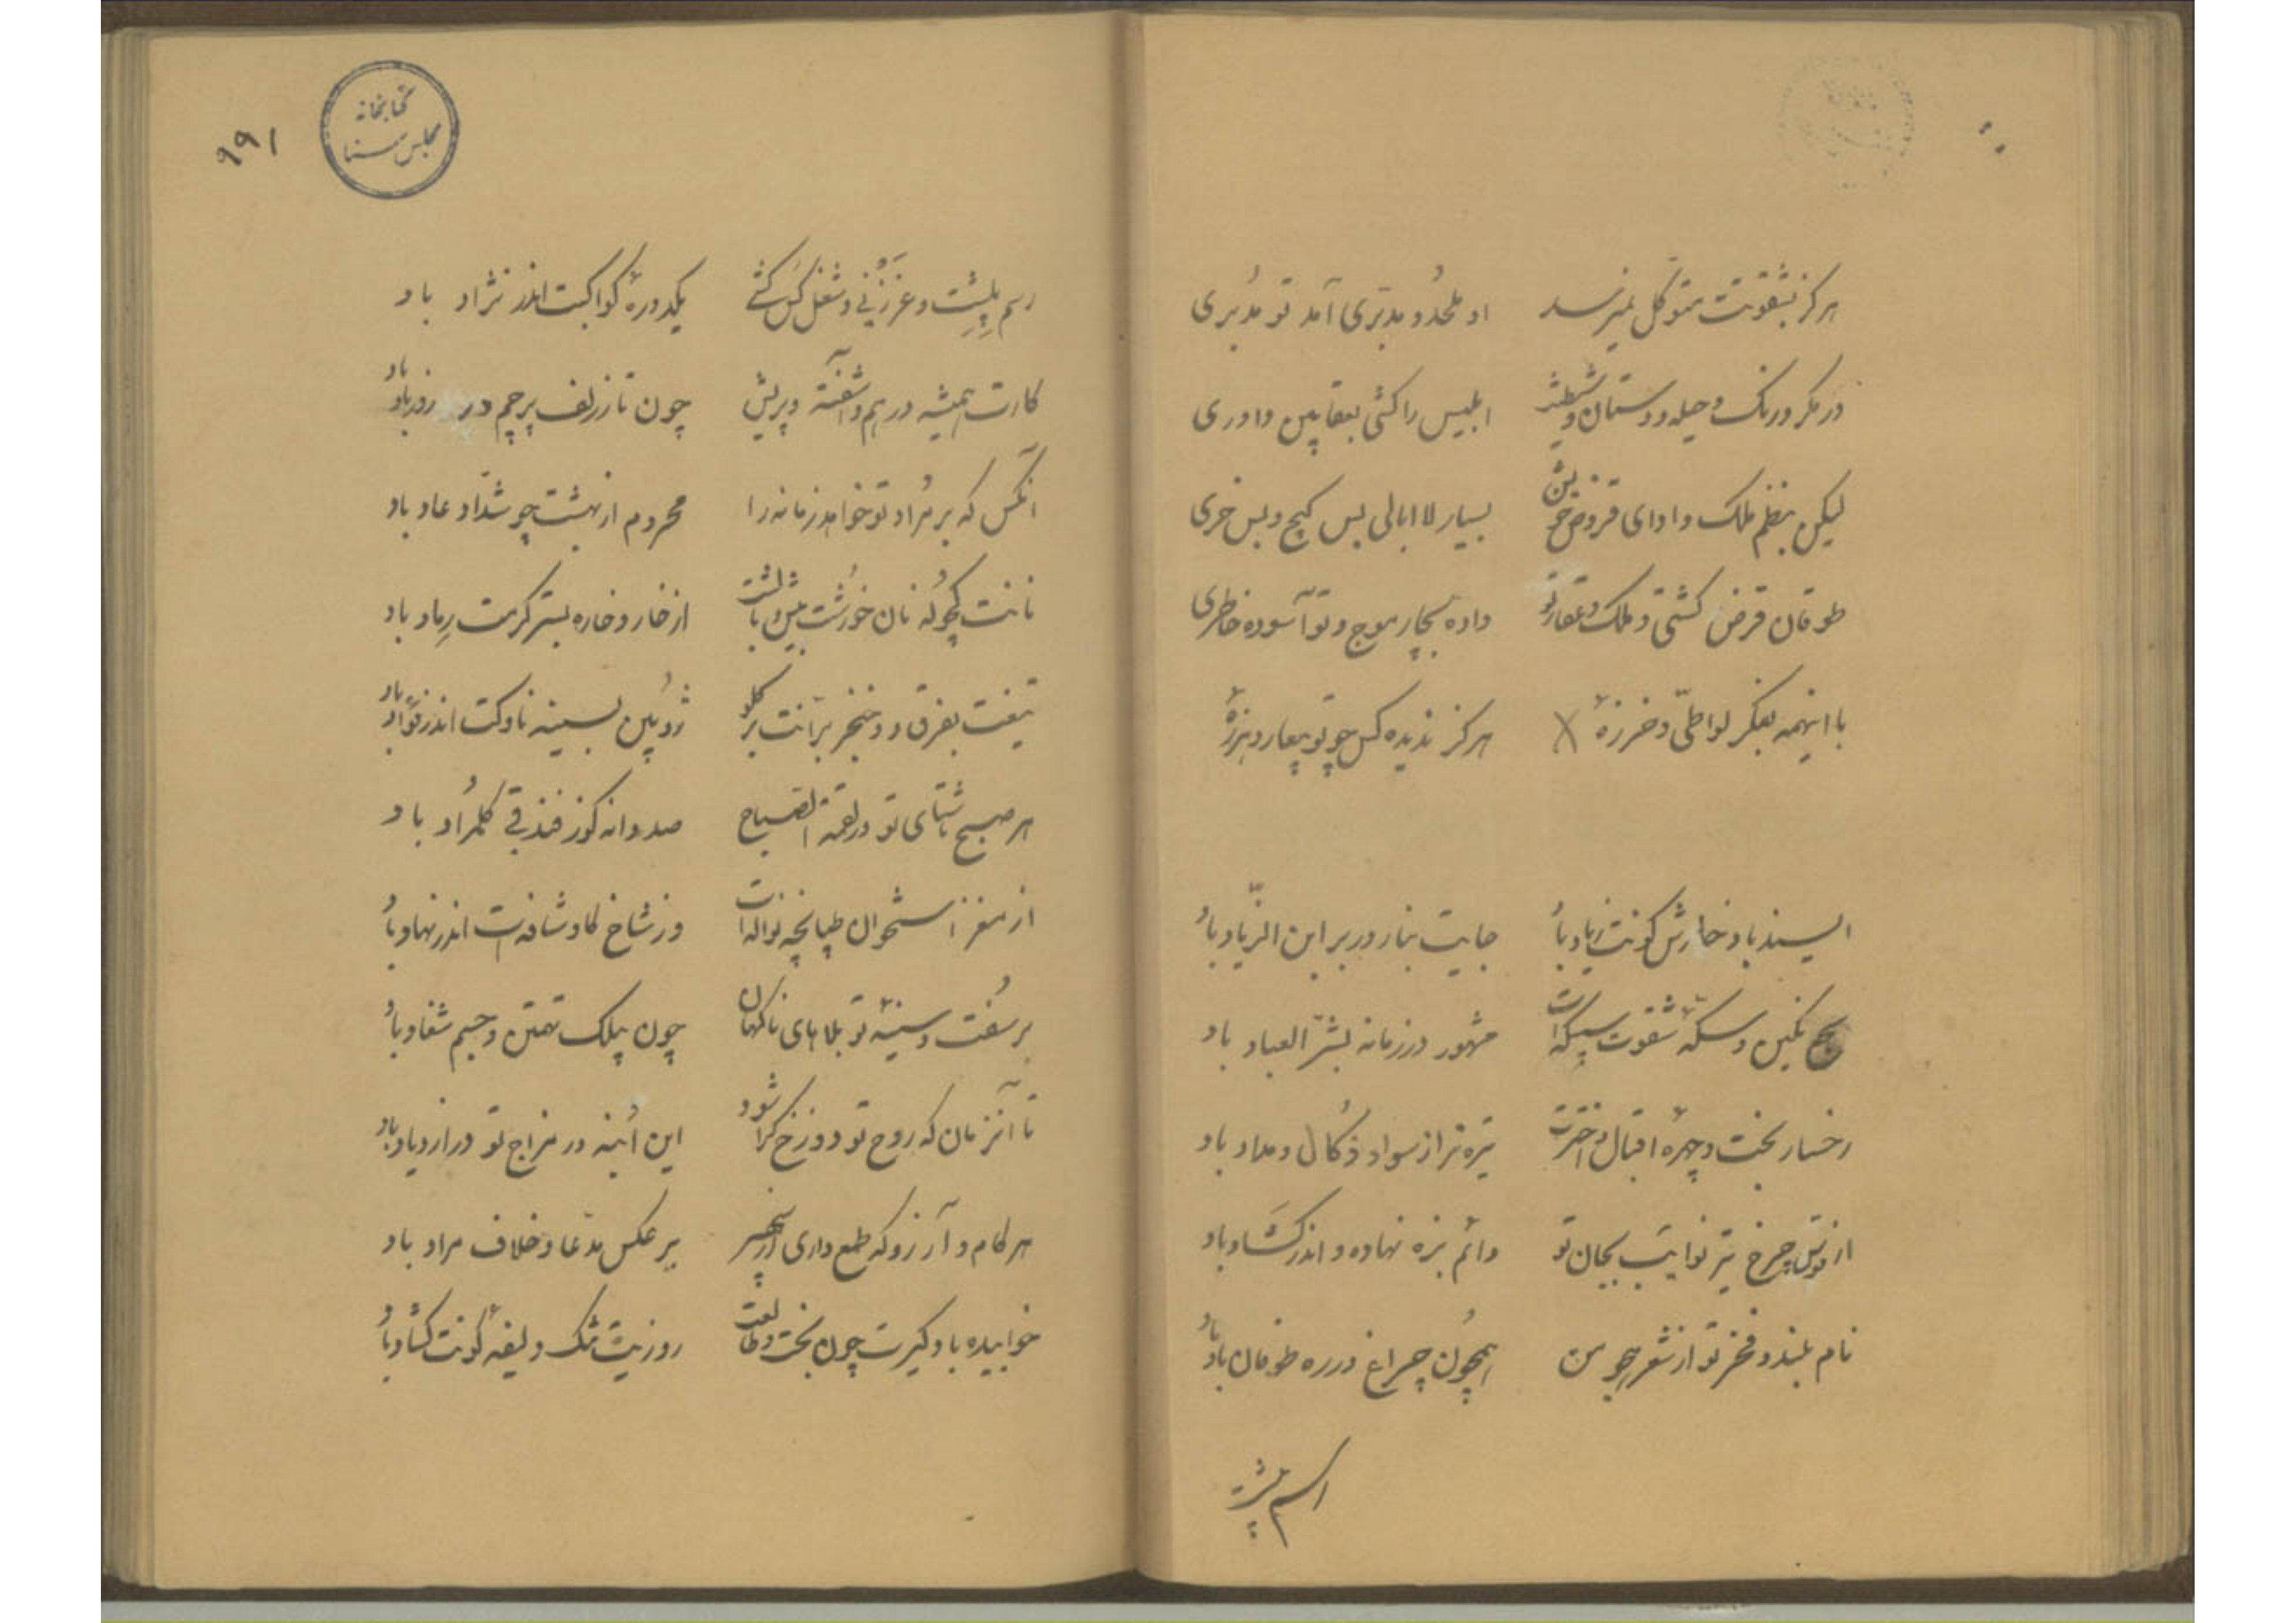 هرگز بشقوتت متوکل نمیرسد او ملحد و مدبری آمد تو مدبری
در مکر و رنگ و حیله و دستان و شیطنت ابلیس را کشی بعقابین داوری
لیکن بنظم ملک و ادای قروض خویش بسیار لاابالی بس گیج و بس خری
طوفان قرض کشتی و ملک و عقار تو داده بچار موج و تو آسوده خاطری
با اینهمه بفکر لواطی و خرزهٔ هرگز ندیده کس چو تو بیعار و هرزهٔ
السند باد خارش کونت زیاد باد جایت بنار در بر ابن الزیاد باد
نگین و سکهٔ شقوت مشهور در زمانه بشر العباد باد
رخسار بخت و چهرهٔ اقبال و اخترت تیره تر از سواد ذگال و مداد باد
از قوس چرخ تیر نوایب بجان تو دائم بزه نهاده و اندر گشاد باد
نام بلند و فخر تو از شعر هجو من همچون چراغ در ره طوفان باد باد
کتابخانه
مجلس سنا
۱۹۹
رسم و شغل یکدورهٔ کواکبت اندر نژاد باد
کارت همیشه در هم و آشفته و پریش چون تار زلف پرچم در باد
آنکس که بر مراد تو خواهد زمانه را محروم از بهشت چو شداد و عاد باد
نانت نان خورشت از خار و خاره بستر گرمت رماد باد
تیغت بفرق و خنجر برّانت بر گلو ژوپین بسینه ناوکت اندر فؤاد باد
هر صبح ناشتای تو در لقمة الصباح صد دانه گوز فندقی باد
از مغز استخوان طپانچه نواله‌ات وز شاخ گاو شافه‌ات اندر نهاد باد
بر سفت و سینهٔ تو بلاهای ناگهان چون پیلک تهمتن و چشم شغاد باد
تا آنزمان که روح تو دوزخ گرا شود این اُبنه در مزاج تو در ازدیاد باد
هر کام و آرزو که طمع داری از سپهر بر عکس مدّعا و خلاف مراد باد
خوابیده باد کیرت چون بخت و طالعت روزیت تنگ و لیفهٔ کونت گشاد باد